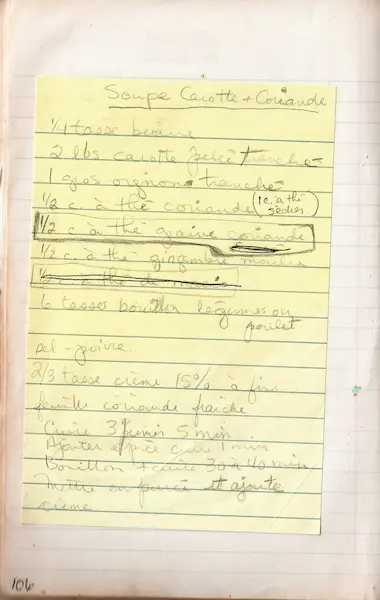 Soupe Carotte + Coriande
1/4 tasse beurre
2 lbs carotte pelée tranché
1 gros orgnon tranché
1/2 c. à thé coriande (1 c. à thé sécher)
1/2 c à thé graine coriande
1/2 c. à thé gingembre moulu
1/2 c à thé de
6 tasses bouillon légumes ou
poulet
sel - poivre
2/3 tasse crème 15% à fin
feuille coriande fraiche
Cuire 3 premier 5 min
Ajouter épice cuire 1 min
Bouillon + cuire 30 à 40 min
Mettre en purée et ajoute
crème
106